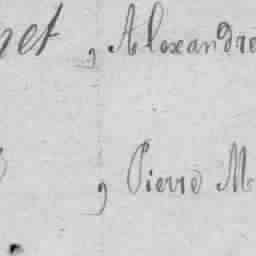 et, Alexandre
, Pierre M